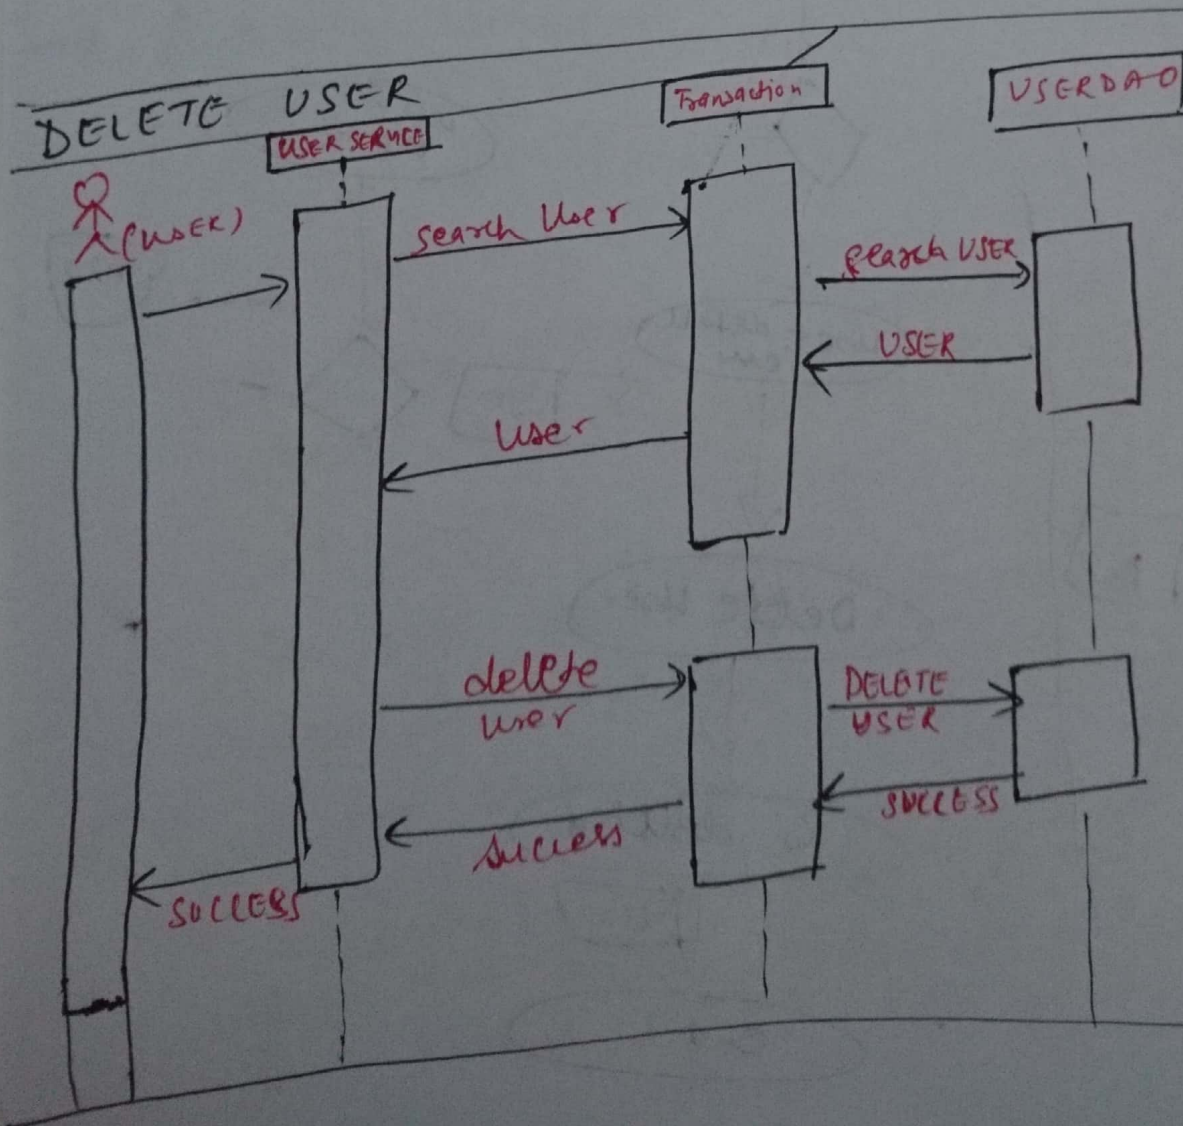 DELETE USER
USER SERVICE
Transaction
USERDAO
(USER)
search User
search USER
USER
User
delete
user
DELETE
USER
SUCCESS
success
SUCCESS